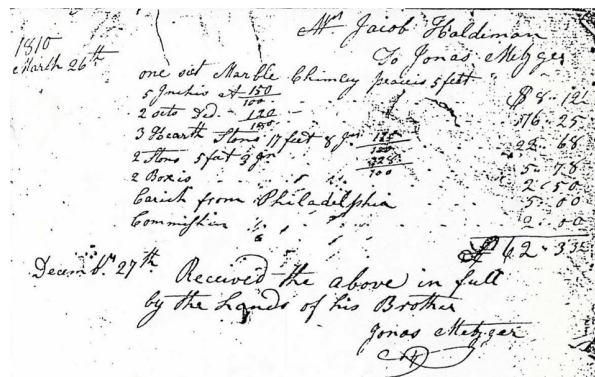 Mr Jacob Haldiman
1810 To Jonas Metzger
March 26th
one set Marble Chimley peacis 5 feet
5 Inchis at 150/100 $8 - 12
2 sets Do - 16 - 25
3 Hearth Stons 17 feet 8 In 22 - 68
2 Stons 5 feet 9 In 5 - 78
2 Boxis 2 - 50
Carich from Philadelphia 5 - 00
Commission 2 - 00
62 - 33
Decemb. 27th Received the above in full
by the hands of his Brother
Jonas Metzger